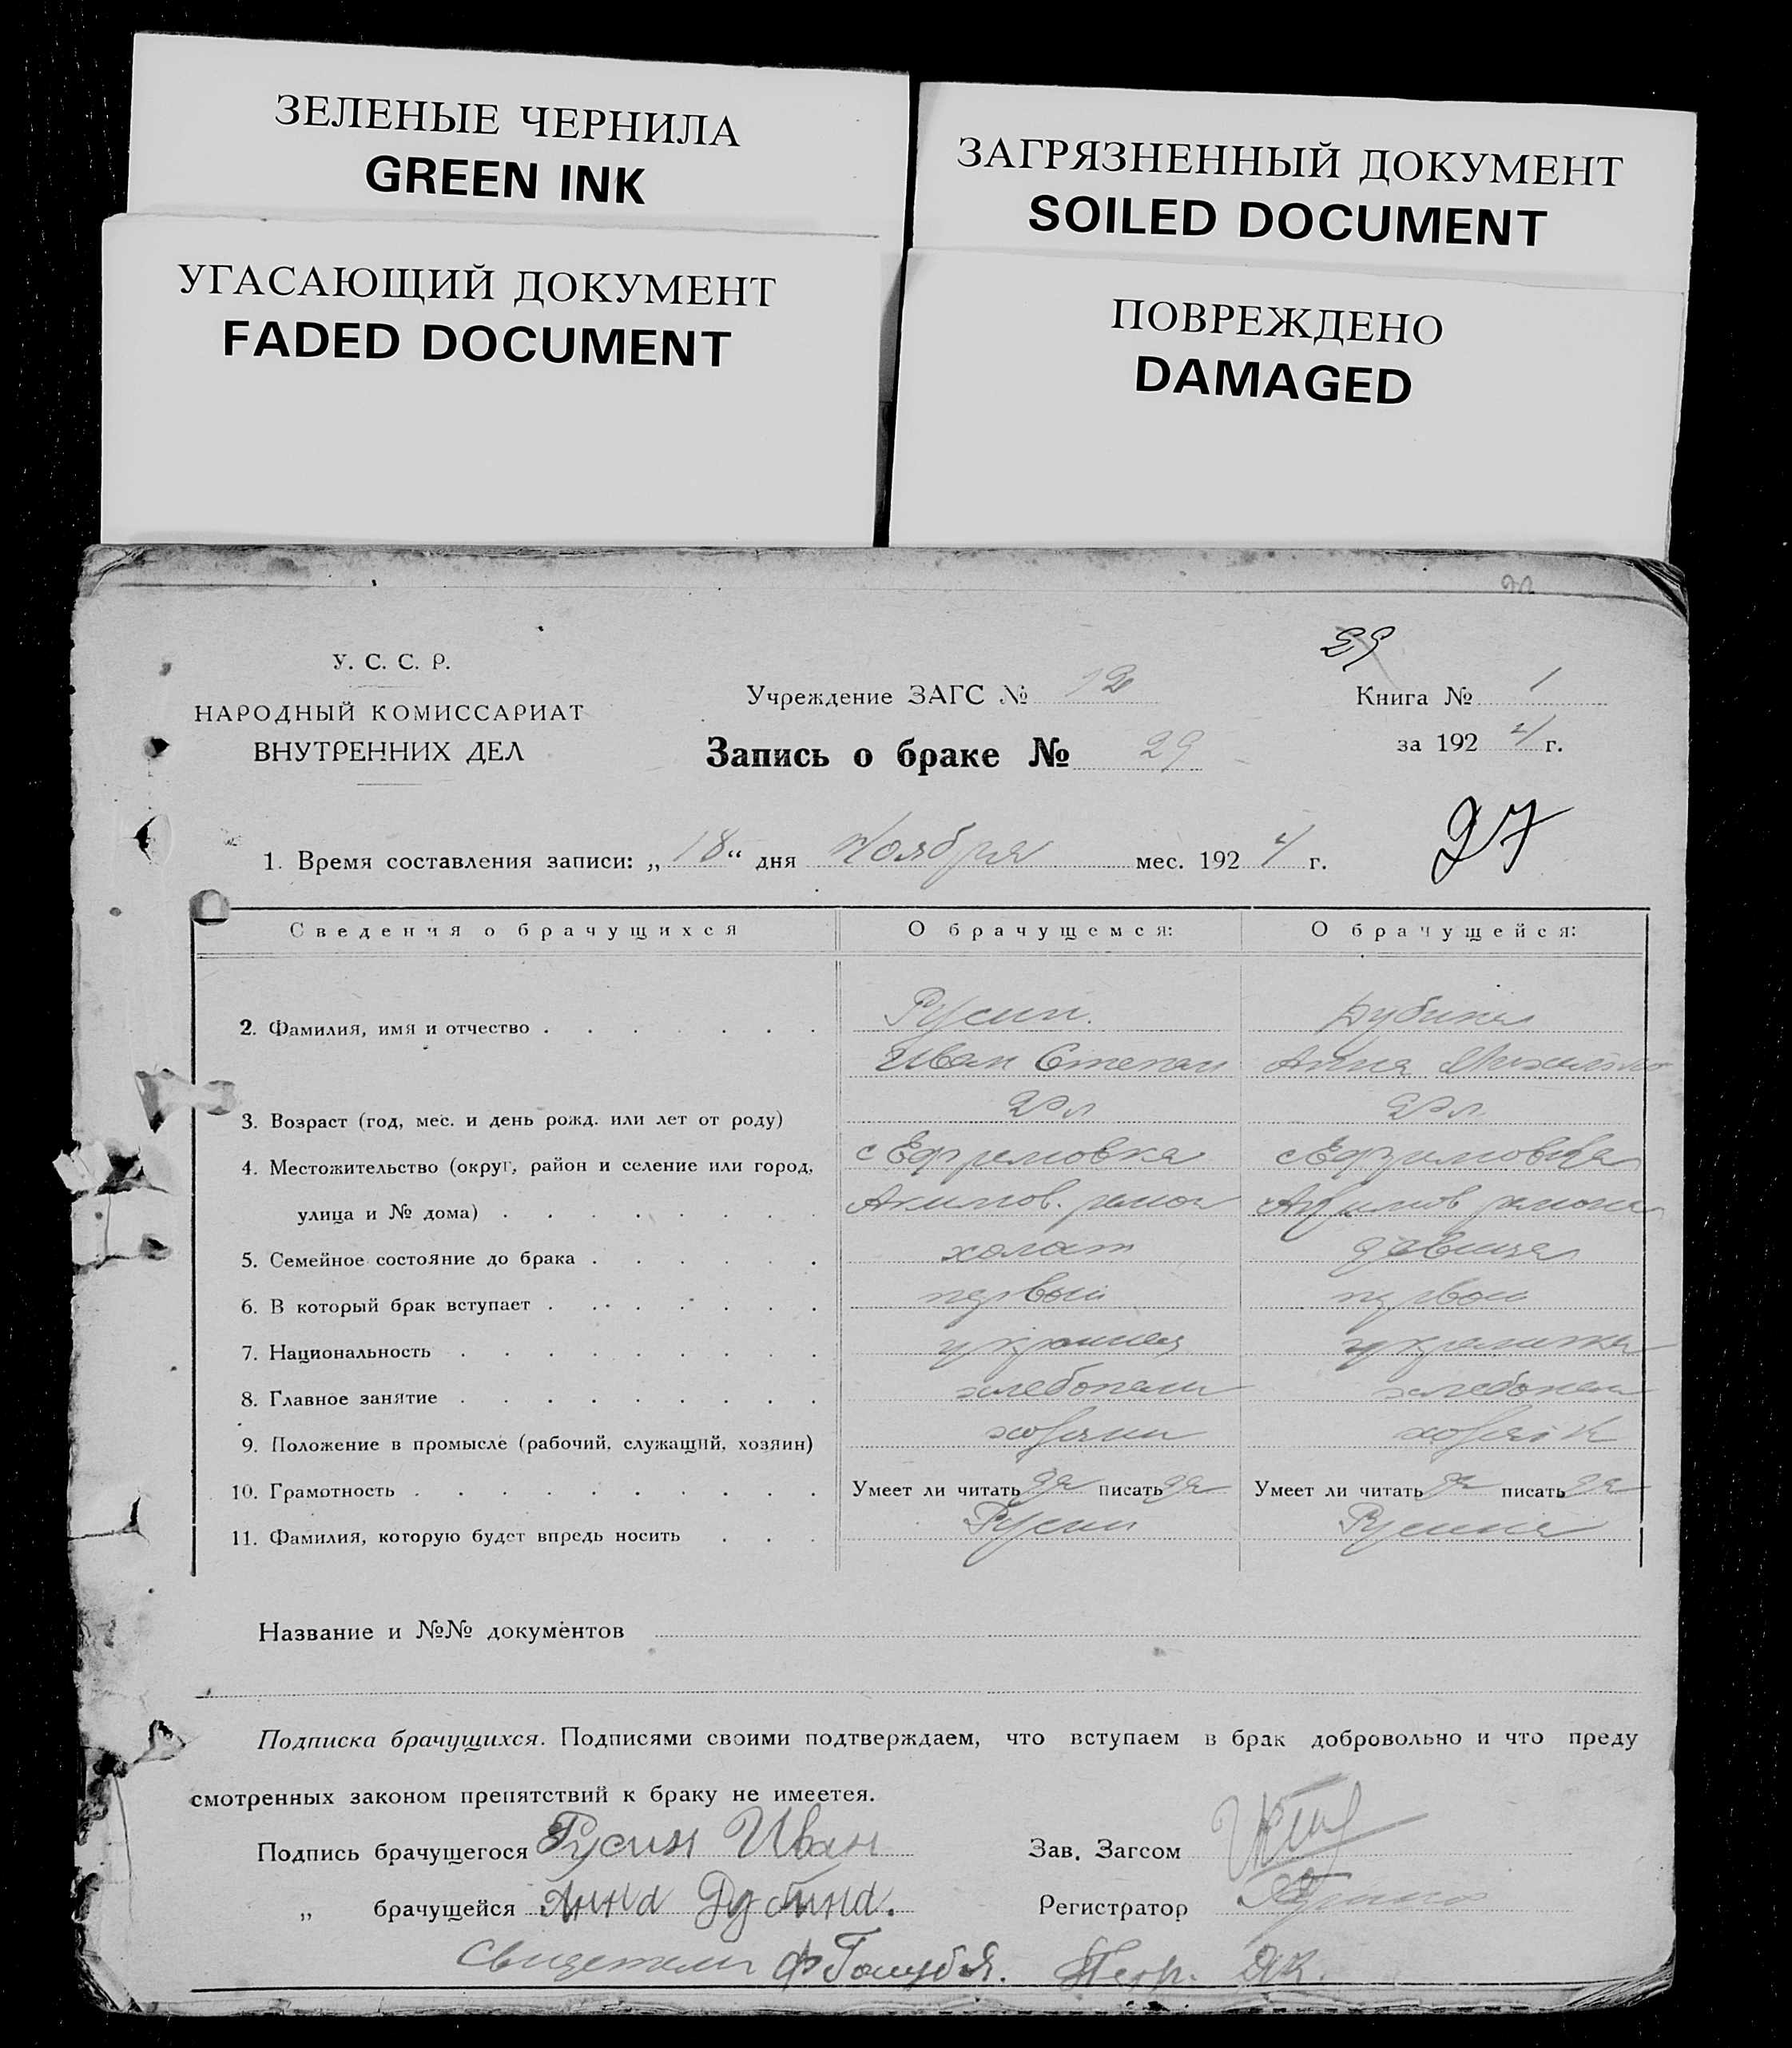 ЗЕЛЕНЫЕ ЧЕРНИЛА
GREEN INK
ЗАГРЯЗНЕННЫЙ ДОКУМЕНТ
SOILED DOCUMENT
УГАСАЮЩИЙ ДОКУМЕНТ
FADED DOCUMENT
ПОВРЕЖДЕНО
DAMAGED
29
У. С. С. Р.
НАРОДНЫЙ КОМИССАРИАТ
ВНУТРЕННИХ ДЕЛ
Учреждение ЗАГС № 12
Книга № 1
Запись о браке № 29
за 1924 г.
27
1. Время составления записи: „18“ дня Ноября мес. 1924 г.
Сведения о брачущихся О брачущемся: О брачущейся:
2. Фамилия, имя и отчество Русин. Дубина
Иван Степан Анна Михайло
3. Возраст (год, мес. и день рожд. или лет от роду) 20 л 20 л
4. Местожительство (округ, район и селение или город, с Ефремовка с Ефремовка
улица и № дома) Акимов. район Акимов района
5. Семейное состояние до брака холост девица
6. В который брак вступает первый первый
7. Национальность украинец украинка
8. Главное занятие хлебопаш хлебопаш
9. Положение в промысле (рабочий, служащий, хозяин) хозяин хозяйк
10. Грамотность Умеет ли читать да писать да Умеет ли читать да писать да
11. Фамилия, которую будет впредь носить Русин Русина
Название и №№ документов
Подписка брачущихся. Подписями своими подтверждаем, что вступаем в брак добровольно и что преду
смотренных законом препятствий к браку не имеется.
Подпись брачущегося Русин Иван Зав. Загсом
„ брачущейся Анна Дубина. Регистратор
Свидетели Ф Голуб Я.